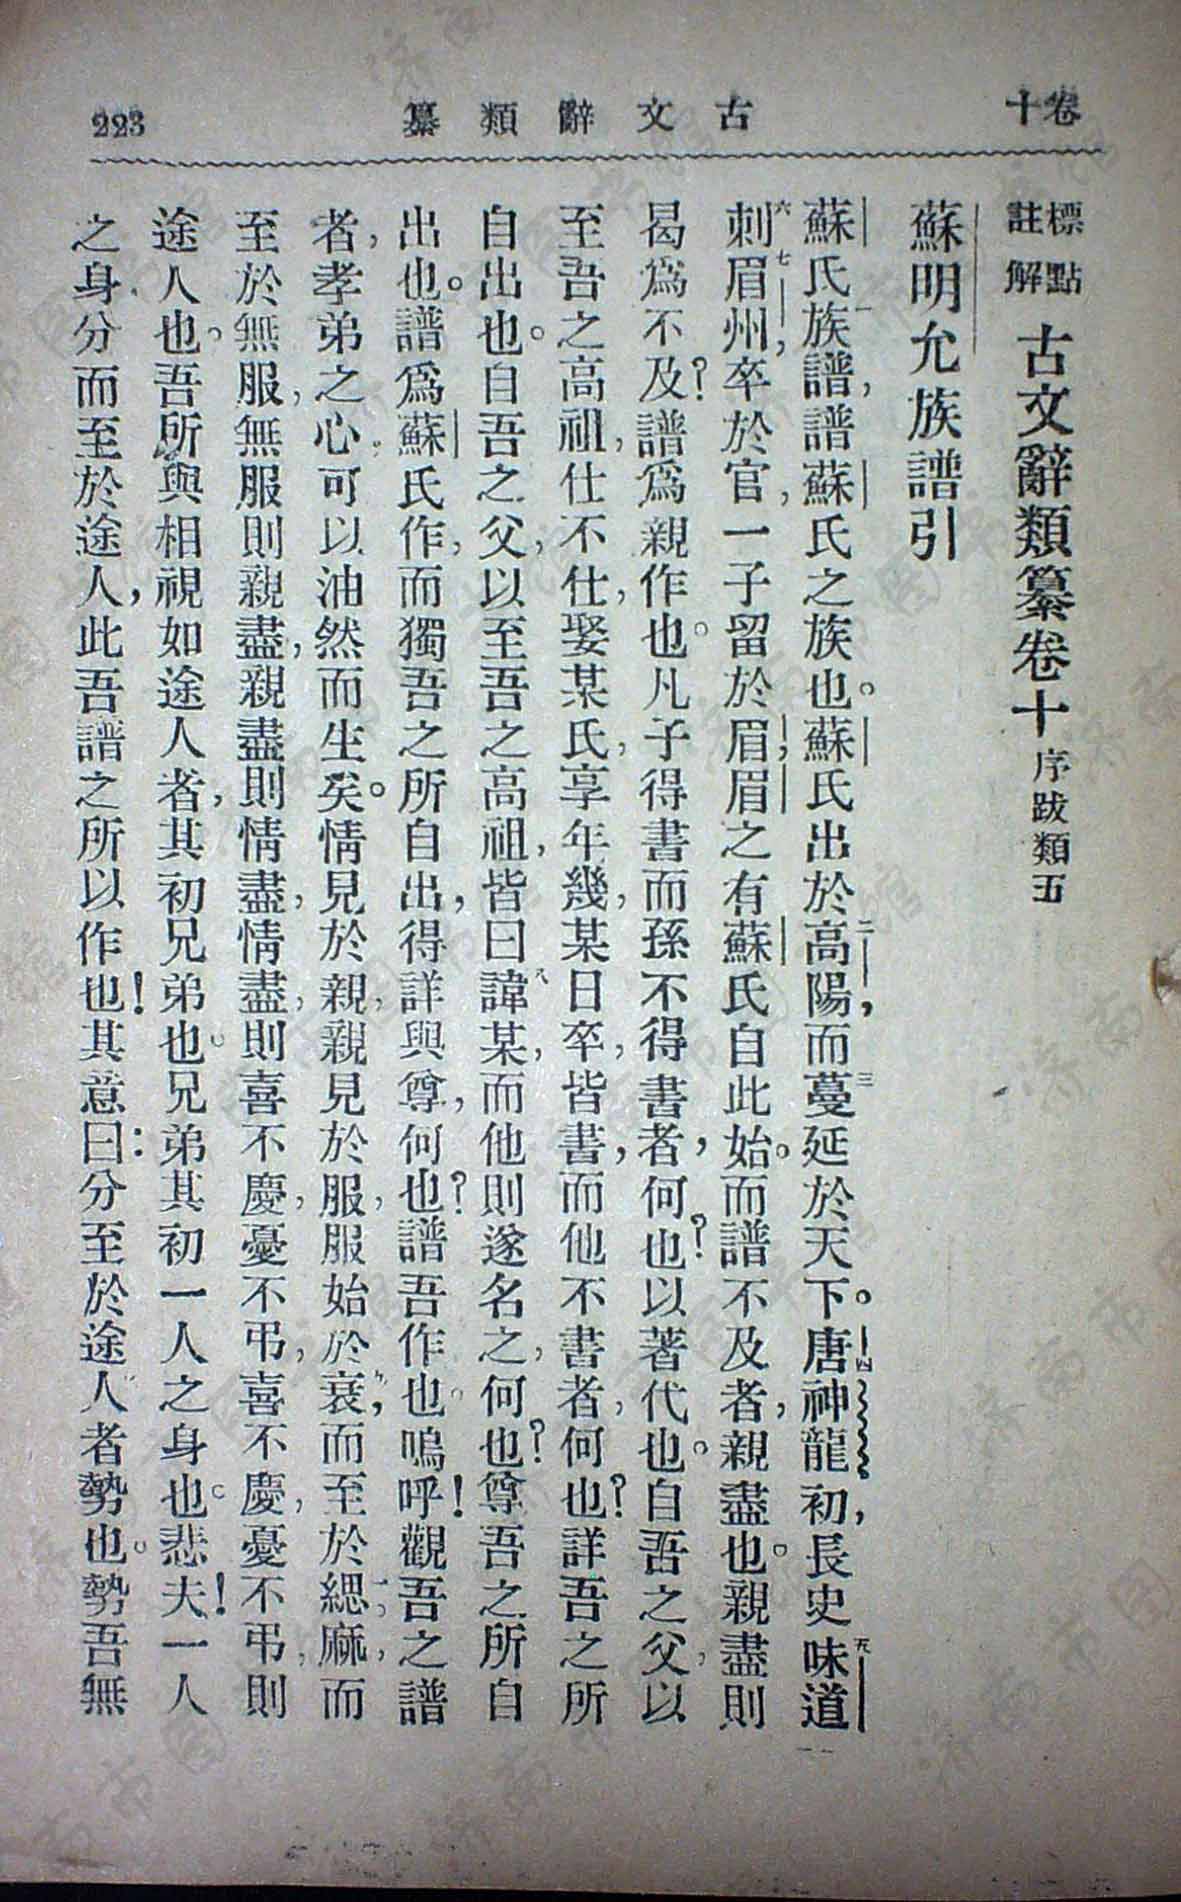 卷十
古文辭類纂
223
標點註解 古文辭類纂卷十 序跋類五
蘇明允族譜引
蘇氏族譜，譜蘇氏之族也。蘇氏出於高陽，而蔓延於天下。唐神龍初，長史味道
刺眉州，卒於官，一子留於眉，眉之有蘇氏自此始。而譜不及者，親盡也。親盡則
曷爲不及？譜爲親作也。凡子得書而孫不得書者，何也？以著代也。自吾之父，以
至吾之高祖，仕不仕，娶某氏，享年幾，某日卒，皆書，而他不書者，何也？詳吾之所
自出也。自吾之父，以至吾之高祖，皆曰諱某，而他則遂名之，何也？尊吾之所自
出也。譜爲蘇氏作，而獨吾之所自出，得詳與尊，何也？譜吾作也。嗚呼！觀吾之譜
者，孝弟之心，可以油然而生矣。情見於親，親見於服，服始於衰，而至於緦麻，而
至於無服，無服則親盡，親盡則情盡，情盡，則喜不慶，憂不弔，喜不慶，憂不弔，則
途人也。吾所與相視如途人者，其初兄弟也。兄弟其初一人之身也。悲夫！一人
之身，分而至於途人，此吾譜之所以作也！其意曰：分至於途人者勢也。勢吾無